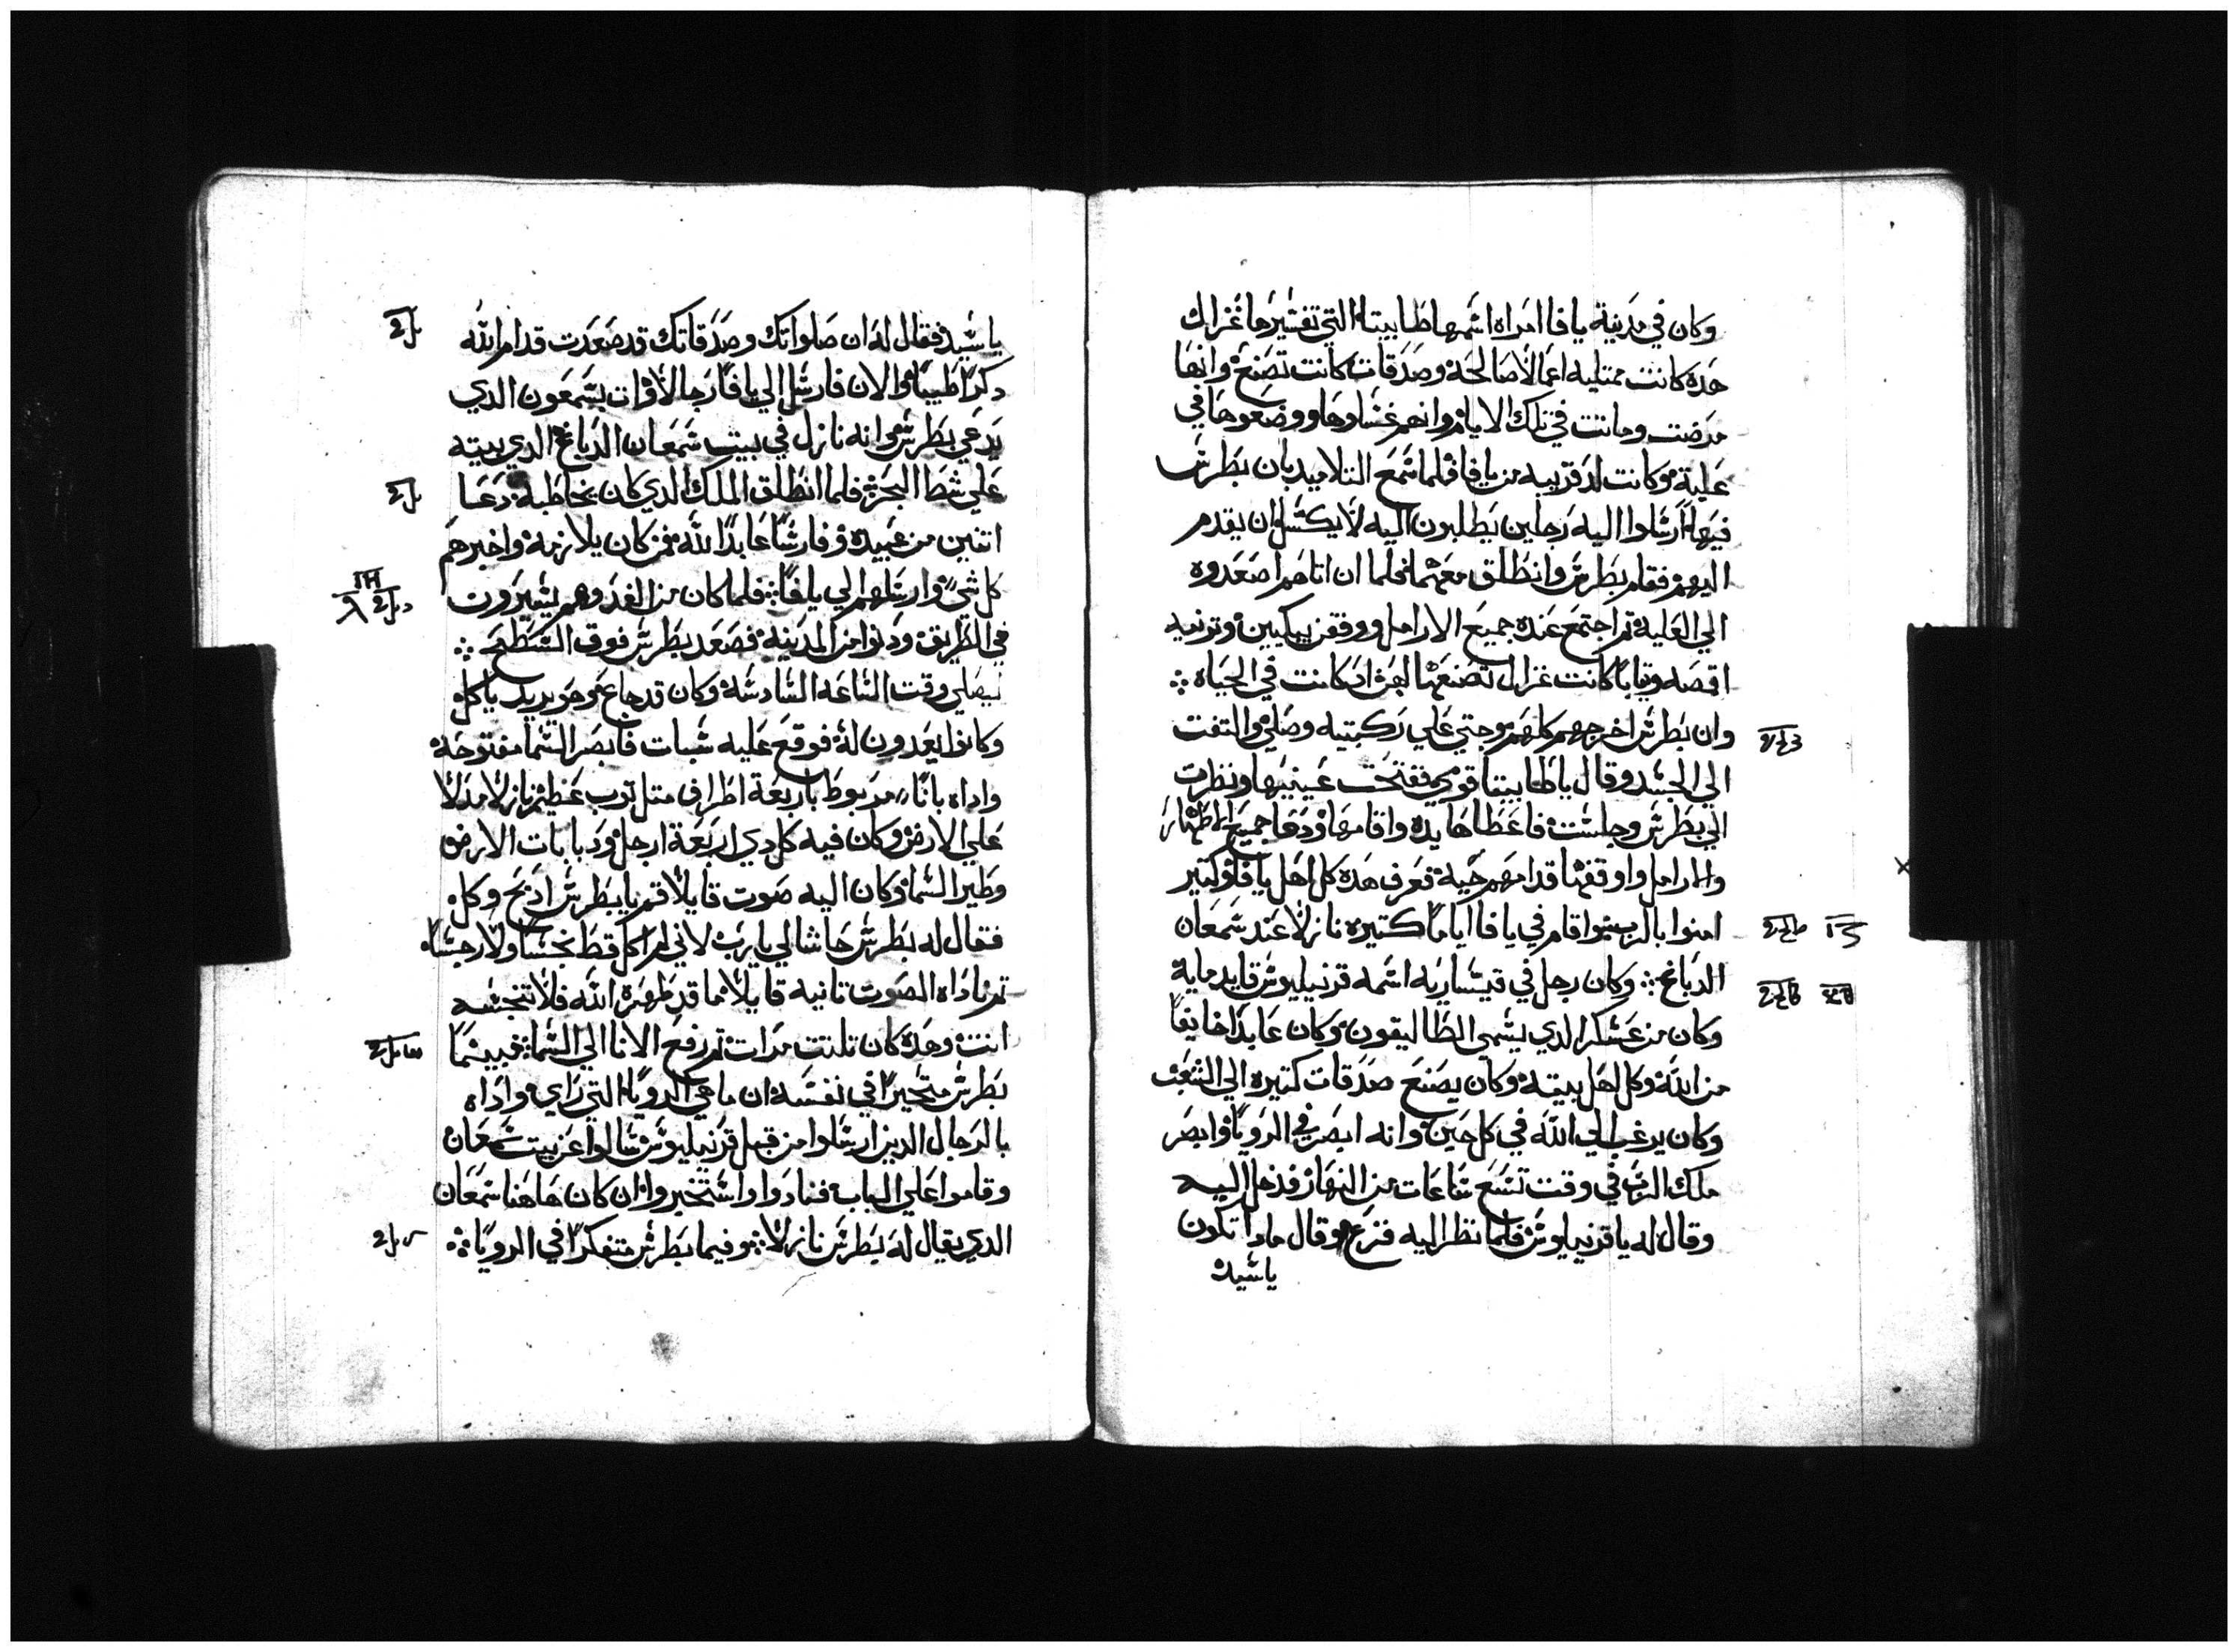 وكان في مدينة يافا امراه اسمها طابيتا التي تفسيرها غزال
هذه كانت ممتليه اعمالا صالحة وصدقات كانت تصنع وانها
مرضت وماتت في تلك الايام وانهم غسلوها ووضعوها في
علية وكانت لد قريبه من يافا فلما سمع التلاميد بان بطرس
فيها ارسلوا اليه رجلين يطلبون اليه لا يكسل ان يقدم
اليهم فقام بطرس وانطلق معهما فلما ان اتاهم اصعدوه
الي العلية ثم اجتمع عنده جميع الارامل ووقفن يبكيين وترنيه
اقمصه وتيابا كانت غزال تصنعها لهن اد كانت في الحياه
وان بطرس اخرجهم كلهم وجتي علي ركبتيه وصلي والتفت
الي الجسد وقال يا طابيتا قومي ففتحت عينيها ونظرت
الي بطرس وجلست فاعطاها يده واقامها ودعا جميع الاطهار
والارامل واوقفها قدامهم حية فعرف هده كل اهل يافا وكتير
امنوا بالرب واقام في يافا اياما كتيره نازلا عند سمعان
الدباغ وكان رجل في قيساريه اسمه قرنيليوس قايد مايه
وكان من عسكر الدي يسمي الطاليقون وكان عابدا خايفا
من الله وكل اهل بيته وكان يصنع صدقات كتيره الي الشعب
وكان يرغب الي الله في كل حين وانه ابصر في الرويا وابصر
ملك الرب في وقت تسع ساعات من النهار فدخل اليه
وقال له يا قرنيليوس فلما نظر اليه فزع وقال مادا تكون
يا سيد
يا سيد فقال له ان صلواتك وصدقاتك قد صعدت قدام الله
دكرا طيبا والان فارسل الي يافا رجالا واات بسمعون الدي
يدعي بطرس وانه نازل في بيت سمعان الدباغ الدي بيته
علي شط البحر فلما انطلق الملك الدي كان يخاطبه دعا
اتنين من عبيده وفارسا عابدا لله ممن كان يلازمه واخبرهم
كل شي وارسلهم الي يافا فلما كان من الغد وهم يسيرون
في الطريق ودنوا من المدينه فصعد بطرس فوق السطح
ليصلي وقت الساعه السادسه وكان قد جاع وهو يريد ياكل
وكانوا يعدون له فوقع عليه سبات فابصر السما مفتوحه
واداه بانا مربوط باربعة اطراف متل توب عظيم نازلا مدلا
علي الارض وكان فيه كل دي اربعة ارجل ودبابات الارض
وطير السما وكان اليه صوت قايلا قم يا بطرس ادبح وكل
فقال له بطرس حاشا لي يا رب لاني لم اكل قط نجسا ولا رجسا
ثم ناداه الصوت تانيه قايلا ما قد طهره الله فلا تنجسه
انت وهده كان تلتت مرات ثم رفع الانا الي السما فبينما
بطرس متحيرا في نفسه ان ما هي الرويا التي راي واداه
بالرجال الدين ارسلوا من قبل قرنيليوس سالوا عن بيت سمعان
وقاموا علي الباب فنادوا واستخبروا ان كان هاهنا سمعان
الدي يقال له بطرس نازلا وفيما بطرس متفكرا في الرويا